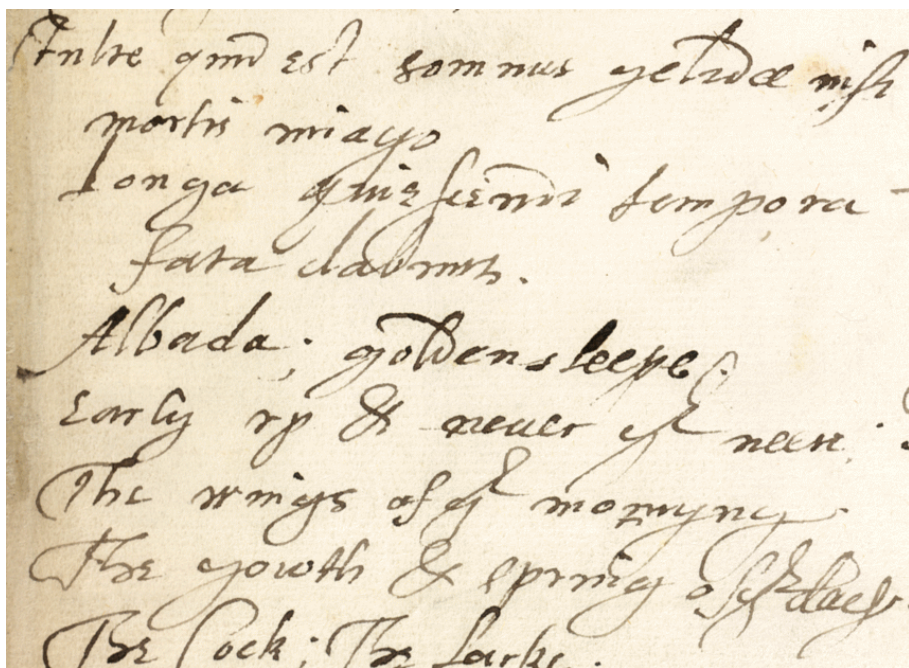 Stulte quid est somnus gelidæ nisi
mortis imago
Longa quiescendi tempora
fata dabunt.
Albada; golden sleepe.
early vp & neuer yᵉ neere.
The wings of yᵉ mornyng
The yowth & spring of yᵉ daey
The Cock; The Larke.